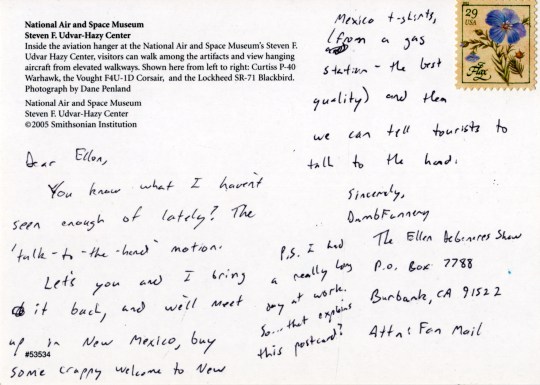 National Air and Space Museum
Steven F. Udvar-Hazy Center
Inside the aviation hanger at the National Air and Space Museum's Steven F.
Udvar Hazy Center, visitors can walk among the artifacts and view hanging
aircraft from elevated walkways. Shown here from left to right: Curtiss P-40
Warhawk, the Vought F4U-1D Corsair, and the Lockheed SR-71 Blackbird.
Photograph by Dane Penland
National Air and Space Museum
Steven F. Udvar-Hazy Center
©2005 Smithsonian Institution
Dear Ellen,
You know what I haven't
seen enough of lately? The
'talk-to-the-hand' motion.
Let's you and I bring
it back, and we'll meet
up in New Mexico, buy
#53534
some crappy welcome to New
Mexico t-shirts,
(from a gas
station - the best
quality) and then
we can tell tourists to
talk to the hand.
Sincerely,
DumbFunnery
P.S. I had
a really long
day at work.
So... that explains
this postcard?
The Ellen Degeneres Show
P.O. Box 7788
Burbank, CA 91522
Attn: Fan Mail
29
USA
Flax